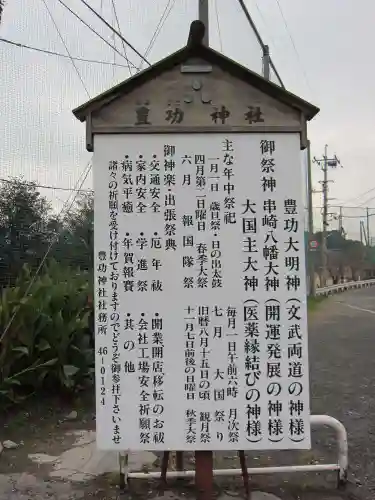 豊功神社
御祭神
豊功大明神(文武両道の神様)
串崎八幡大神(開運発展の神様)
大国主大神(医薬縁結びの神様)
主な年中祭祀
一月一日 歳旦祭・日の出太鼓
四月第二日曜日 春季大祭
六月 報国隊祭
毎月一日午前六時 月次祭
七月 大国祭り
旧暦八月十五日の頃 観月祭
十一月七日前後の日曜日 秋季大祭
御神楽・出張祭典
・交通安全 ・厄年祓 ・開業開店移転のお祓
・家内安全 ・学進祭 ・会社工場安全祈願祭
・病気平癒 ・年賀報賽 ・其の他
諸々の祈願を受け付けておりますのでどうぞ御参拝下さいませ
豊功神社社務所 46-0124